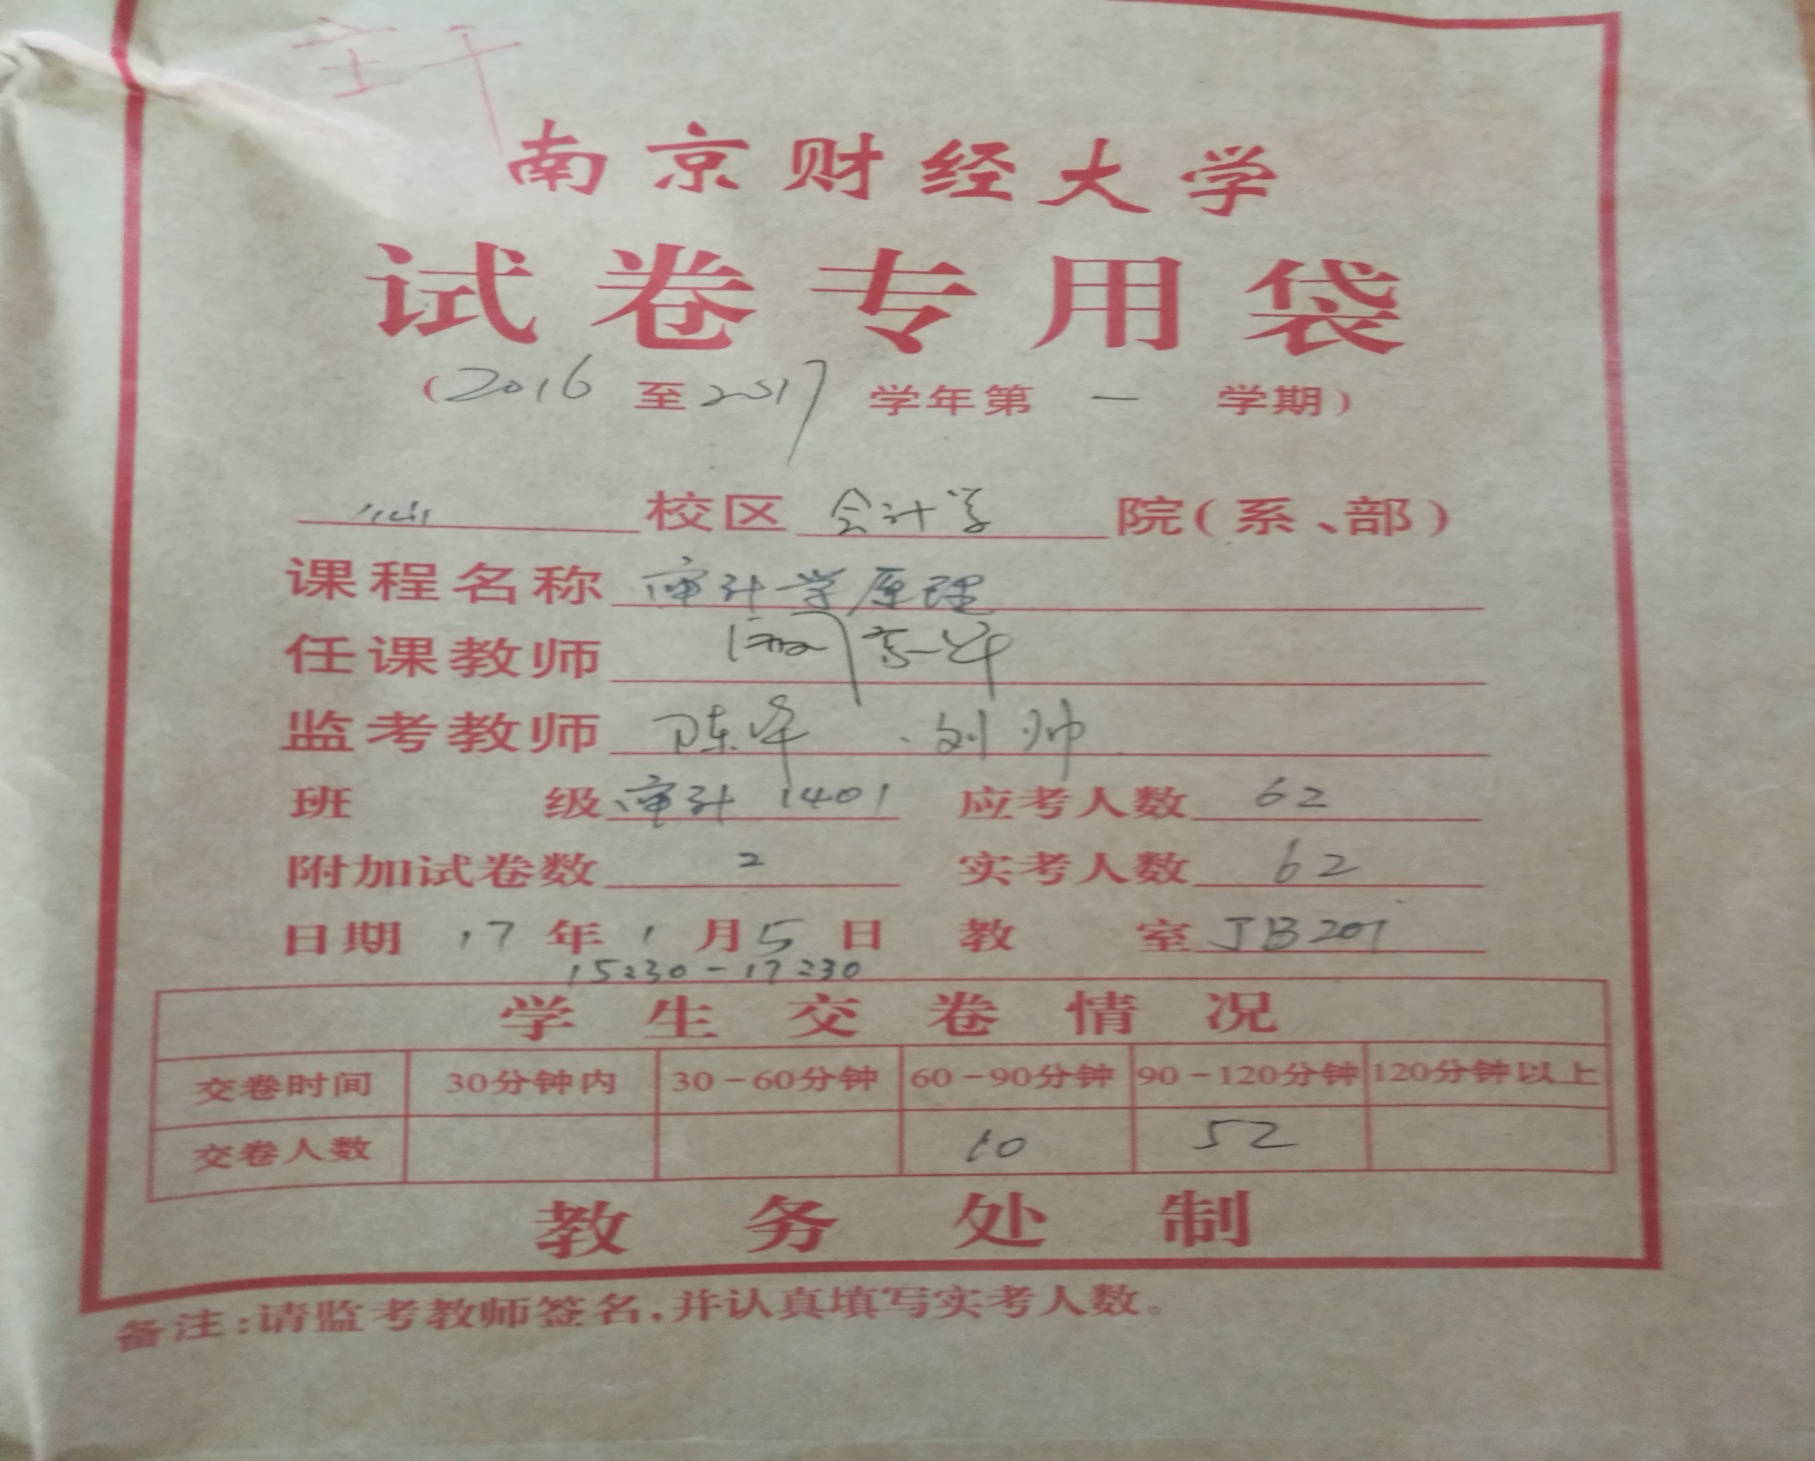 主干
南京财经大学
试卷专用袋
(2016 至 2017 学年第 一 学期)
校区 会计学 院(系、部)
课程名称 审计学原理
任课教师
监考教师 陈华 . 刘帅
班 级 审计1401 应考人数 62
附加试卷数 2 实考人数 62
日期 17 年 1 月 5 日 教 室 JB201
15:30-17:30
学生交卷情况
交卷时间 30分钟内 30-60分钟 60-90分钟 90-120分钟 120分钟以上
交卷人数 10 52
教务处制
备注:请监考教师签名,并认真填写实考人数。